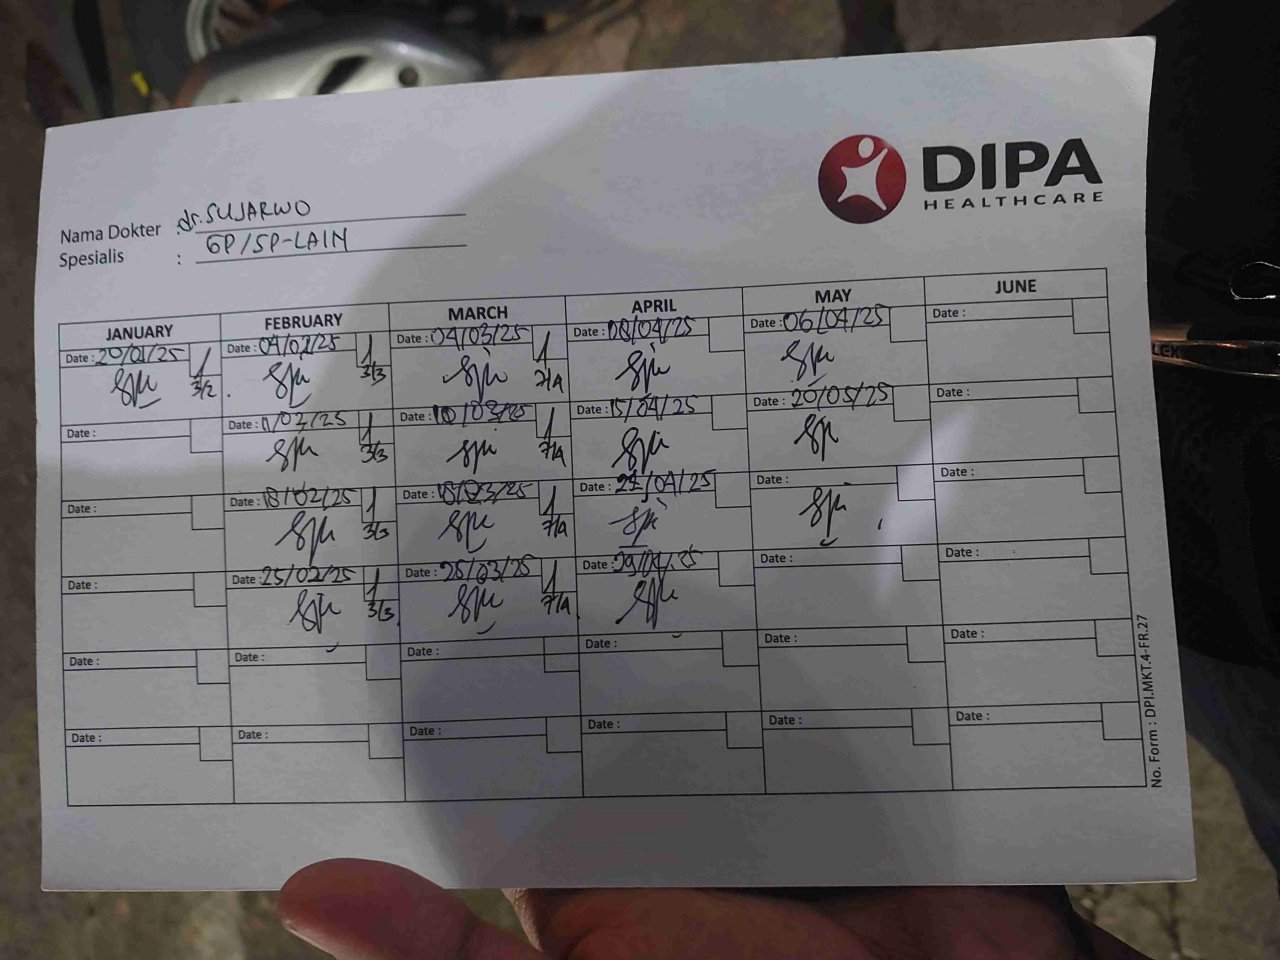 DIPA
HEALTHCARE
Nama Dokter : dr. SUJARWO
Spesialis : GP/SP-LAIN
JANUARY FEBRUARY MARCH APRIL MAY JUNE
Date : 20/01/25 Date : 04/02/25 Date : 04/03/25 Date : 08/04/25 Date : 06/04/25 Date :
3/2 3/3 7/4
Date : Date : 11/02/25 Date : 10/03/25 Date : 15/04/25 Date : 20/05/25 Date :
3/3 7/4
Date : Date : 18/02/25 Date : 18/03/25 Date : 22/04/25 Date : Date :
3/3 7/4
Date : Date : 25/02/25 Date : 25/03/25 Date : 29/04/25 Date : Date :
3/3 7/4
Date : Date : Date : Date : Date : Date :
Date : Date : Date : Date : Date : Date :
No. Form : DPI.MKT.4-FR.27